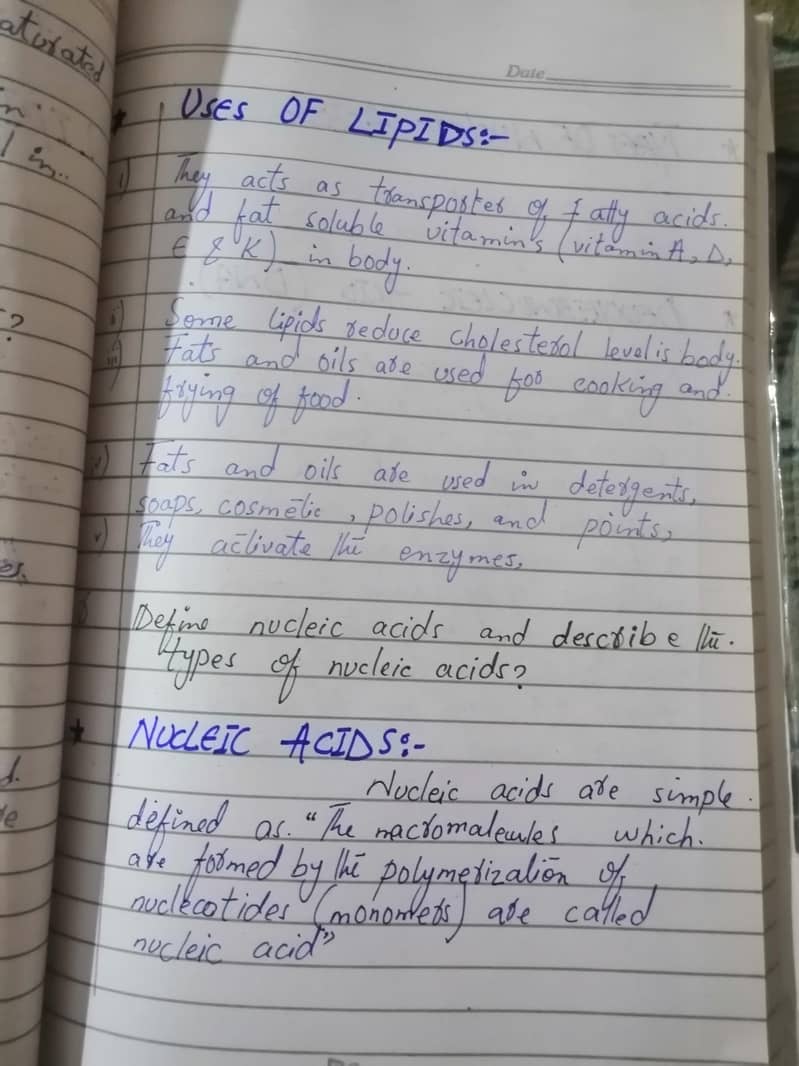 aturated
in
l in..
?
es.
d.
Date
* USES OF LIPIDS:-
i) They acts as transporter of fatty acids.
and fat soluble vitamin's (vitamin A, D,
E & K) in body.
ii) Some lipids reduce cholesterol level is body.
iii) Fats and oils are used for cooking and.
frying of food.
iv) Fats and oils are used in detergents,
soaps, cosmetic, polishes, and points,
v) They activate the enzymes,
Define nucleic acids and describe the.
types of nucleic acids?
* NUCLEIC ACIDS:-
Nucleic acids are simple.
defined as. "The macromalecules which.
are formed by the polymerization of
nuclecotides (monomers) are called
nucleic acid"